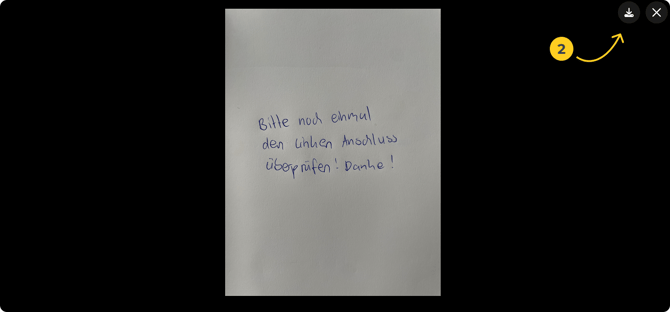 2
Bitte noch einmal
den linken Anschluss
überprüfen! Danke!